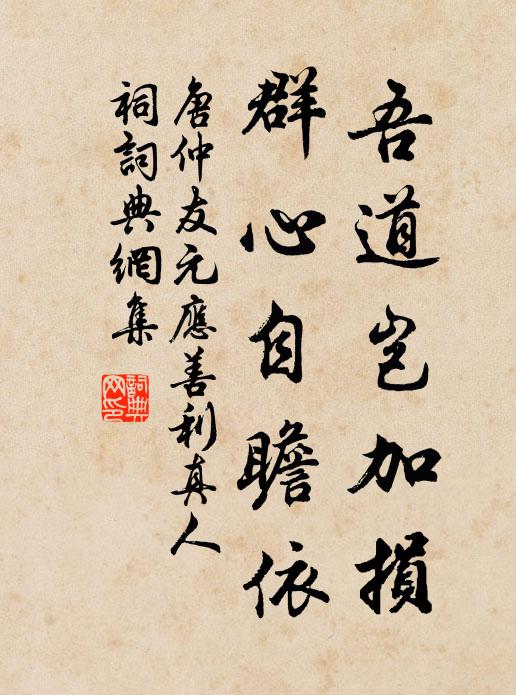 吾道豈加損
群心自瞻依
唐仲友元應善利真人
祠詞典網集
詞典
网印